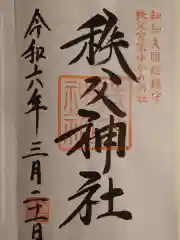 知知夫国総鎮守
秩父宮家ゆかりの社
秩父神社
令和六年三月二十一日